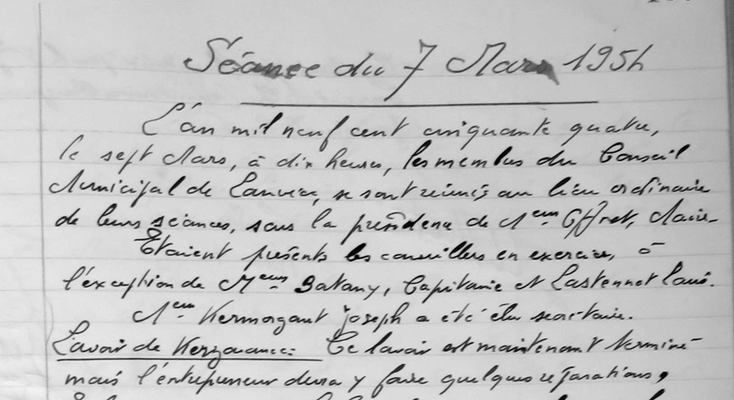 Séance du 7 Mars 1954
L'an mil neuf cent cinquante quatre,
le sept Mars, à dix heures, les membres du Conseil
Municipal de Lanvéoc, se sont réunis au lieu ordinaire
de leurs séances, sous la présidence de Mr Goffret, Maire.
Etaient présents les conseillers en exercice, à
l'exception de Meurs Batany, Capitaine et Lastennet Louis.
Meur Kermorgant Joseph a été élu secrétaire.
Lavoir de : Ce lavoir est maintenant terminé
mais l'entrepreneur devra y faire quelques réparations,